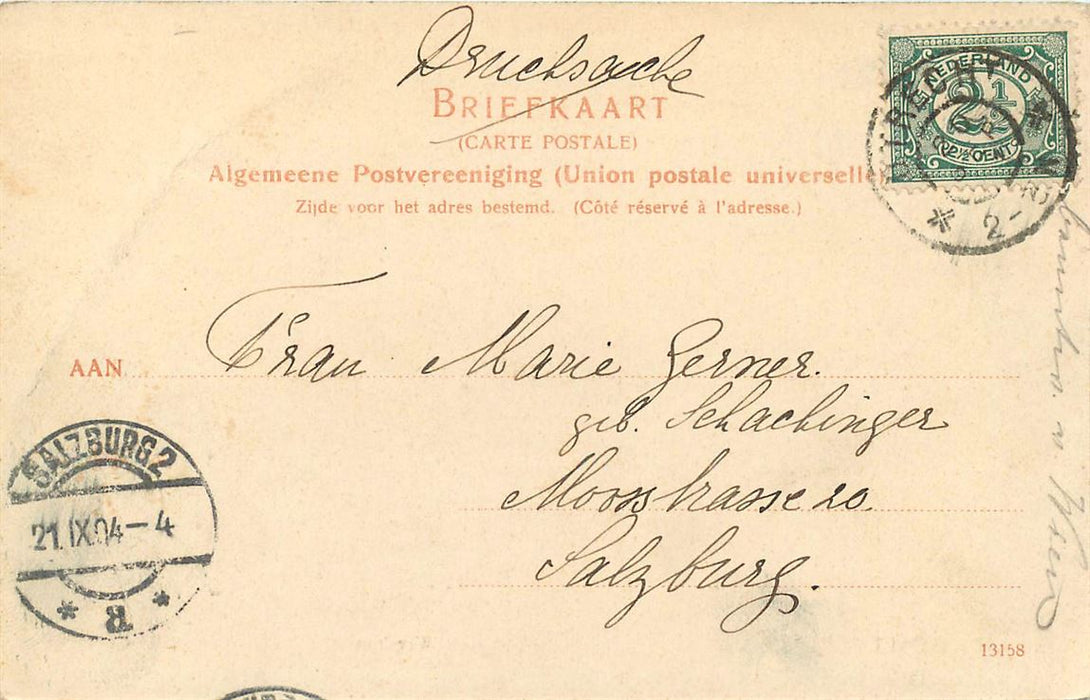 Drucksache
BRIEFKAART
(CARTE POSTALE)
Algemeene Postvereeniging (Union postale universelle
Zijde voor het adres bestemd. (Côté réservé à l'adresse.)
NEDERLAND
2½
2½ CENT
2-
AAN
Frau Marie Gerner.
geb. Schachinger
Moosstrasse 20
Salzburg.
SALZBURG 2
21.IX.04-4
* B *
13158